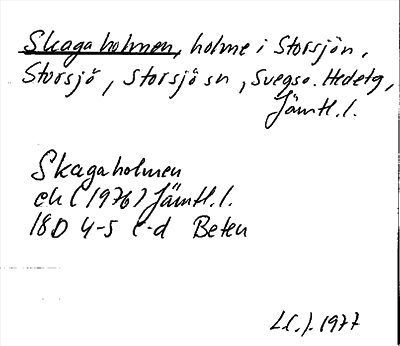 Skagaholmen, holme i Storsjön,
Storsjö, Storsjö sn, Svegso. Hedetg,
Jämtl. l.
Skagaholmen
ek (1976) Jämtl. l.
18D 4-5 c-d Beten
1977